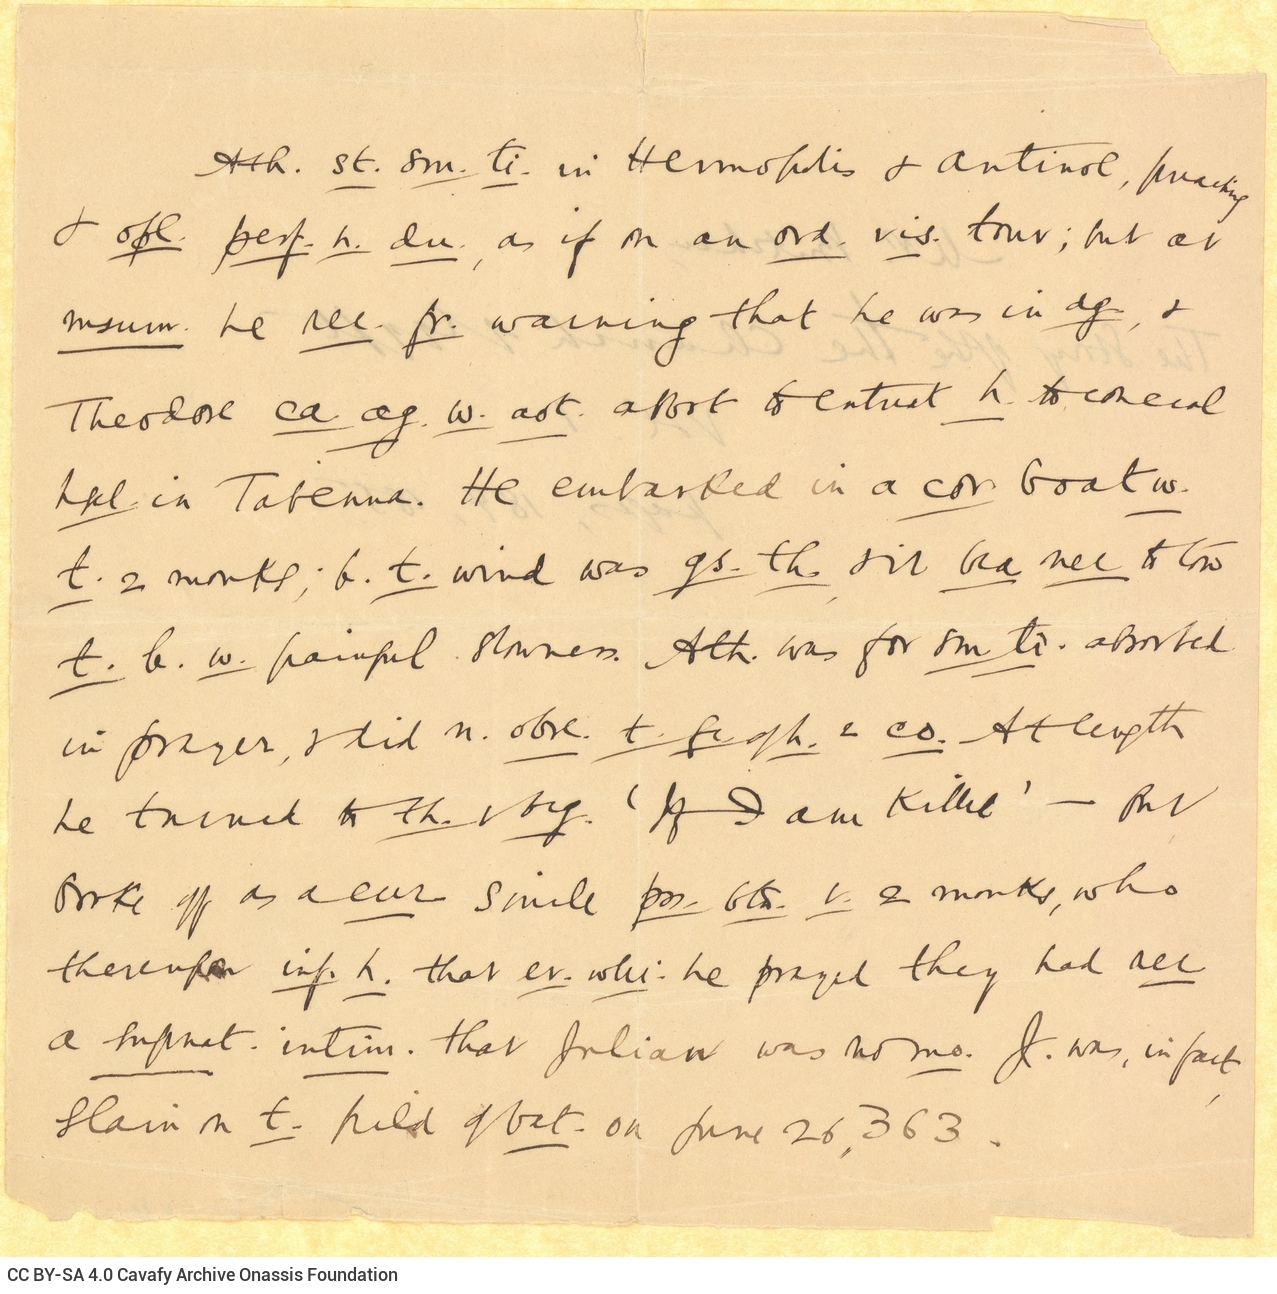 Ath. st. sm. ti. in Hermopolis & Antinoe, preaching
& ofl. perf. h. du., as if on an ord. vis. tour; but at
msum. he rec. fr. warning that he was in dg., &
Theodore ca. ag. w. aot. abbot to entreat h. to conceal
hsl. in Tabenna. He embarked in a cov boat w.
t. 2 monks; b. t. wind was gs. th., & it bea nec to tow
t. b. w. painful slowness. Ath. was for sm. ti. absorbed
in prayer, & did n. obse. t. fe. of h. 2 co. At length
he turned to th. & beg. 'If I am killed' — but
broke off as a cur smile pss. btn. t. 2 monks, who
thereupon inf. h. that ev. whi. he prayed they had rec
a supnat. intim. that Julian was no mo. J. was, in fact,
slain on t. field of bat. on June 26, 363.
CC BY-SA 4.0 Cavafy Archive Onassis Foundation